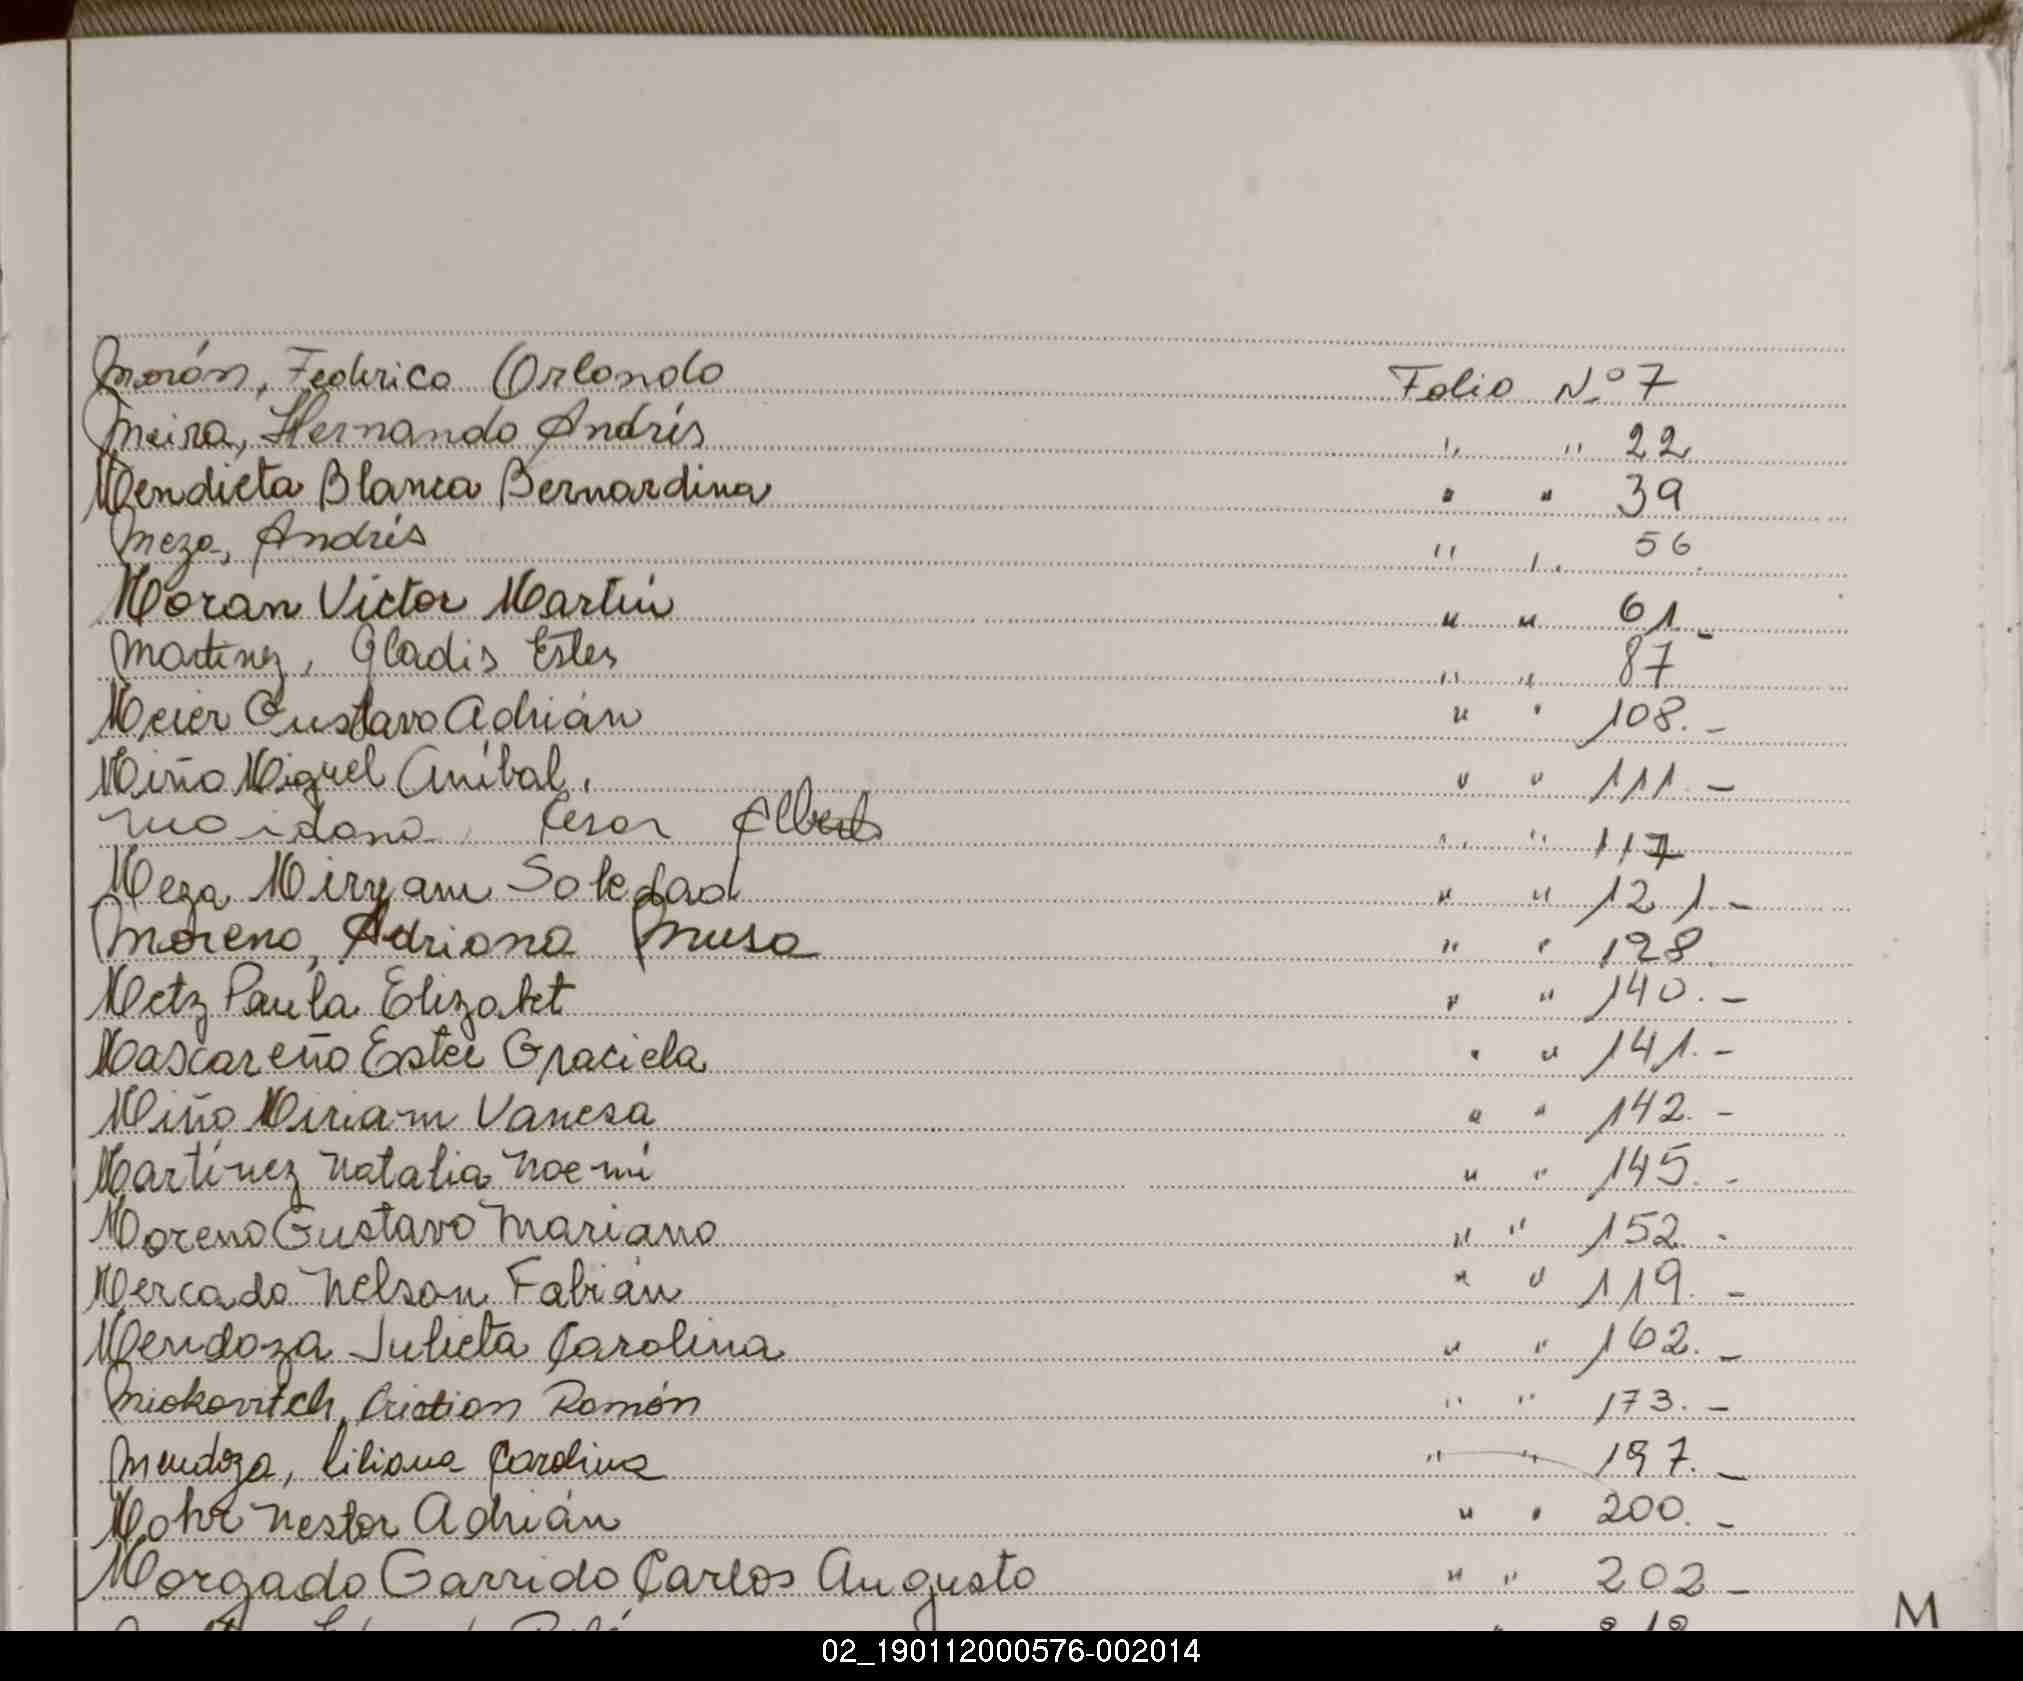 Morón, Federico Orlando Folio Nº 7
Meira, Hernando Andrés " " 22
Mendieta Blanca Bernardina " " 39
Meza, Andrés " " 56
Moran Victor Martín " " 61.-
Martinez, Gladis Ester " " 87
Meier Gustavo Adrián " " 108.-
Miño Miguel Aníbal. " " 111.-
Maidana, Cesar Alberto " " 117
Meza Miryam Soledad " " 121.-
Moreno, Adriana Musa " " 128.
Metz Paula Elizabet " " 140.-
Mascareño Ester Graciela " " 141.-
Miño Miriam Vanesa " " 142.-
Martínez Natalia Noemí " " 145.-
Moreno Gustavo Mariano " " 152.-
Mercado Nelson Fabián " " 119.-
Mendoza Julieta Carolina " " 162.-
Miokovitch, Cristian Ramón " " 173.-
Mendoza, Liliana Carolina " " 197.-
Mohr Nestor Adrián " " 200.-
Morgado Garrido Carlos Augusto " " 202-
M
02_190112000576-002014